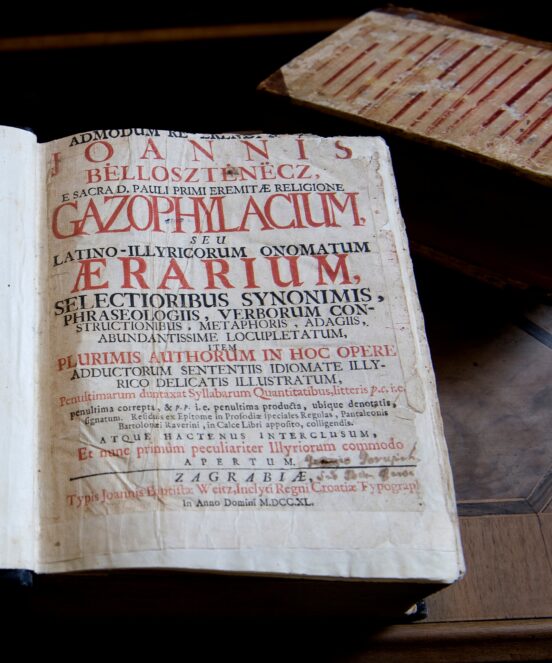 ADMODUM RE
JOANNIS
BĖLLOSZTĖNĖCZ,
E SACRA D. PAULI PRIMI EREMITÆ RELIGIONE
GAZOPHYLACIUM,
SEU
LATINO-ILLYRICORUM ONOMATUM
ÆRARIUM,
SELECTIORIBUS SYNONIMIS,
PHRASEOLOGIIS, VERBORUM CON-
STRUCTIONIBUS, METAPHORIS, ADAGIIS,
ABUNDANTISSIME LOCUPLETATUM,
ITEM
PLURIMIS AUTHORUM IN HOC OPERE
ADDUCTORUM SENTENTIIS IDIOMATE ILLY-
RICO DELICATIS ILLUSTRATUM,
Penultimarum duntaxat Syllabarum Quantitatibus, litteris p.c. i.e.
penultima correpta, & p.p. i.e. penultima producta, ubique denotatis,
signatum. Reliquis ex Epitome in Prosodiæ speciales Regulas, Pantaleonis
Bartolonæi Raverini, in Calce Libri apposito, colligendis.
ATQUE HACTENUS INTERCLUSUM,
Et nunc primùm peculiariter Illyriorum commodo
APERTUM.
ZAGRABIÆ,
Typis Joannis Baptistæ Weitz, Inclyti Regni Croatiæ Typograp
In Anno Domini M.DCC.XL.